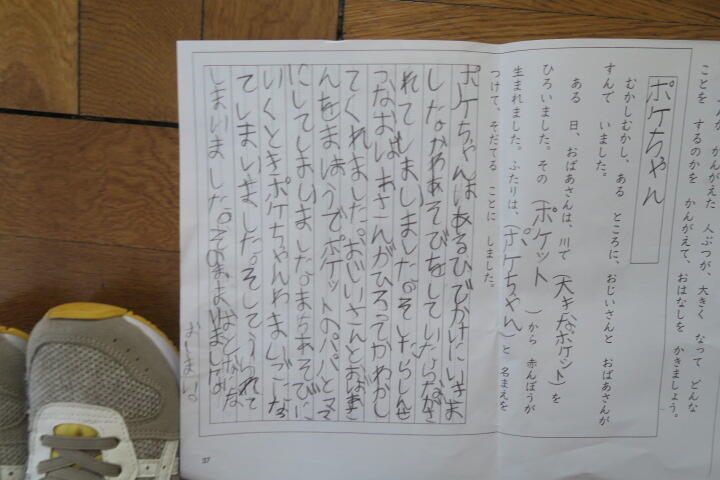 かんがえた 人ぶつが、大きく なって どんな
ことを するのかを かんがえて、おはなしを かきましょう。
ポケちゃん
むかしむかし、ある ところに、おじいさんと おばあさんが
すんで いました。
ある 日、おばあさんは、川で (大きなポケット)を
ひろいました。その (ポケット)から 赤んぼうが
生まれました。ふたりは、(ポケちゃん)と 名まえを
つけて、そだてる ことに しました。
ポケちゃんはあるひでかけにいきま
しながわあそびをしていたらながさ
れてしましました。そしたらしんせ
つなおばあさんがひろってかわかし
てくれました。おじいさんとおばあさ
んをまほうでポケットのパパとママ
にしてしまいました。まちあそびに
いくときポケちゃんわまいごにな
てしまいました。そしてうられて
しまいました。そのままおとなにな
りました。
おしまい。
37